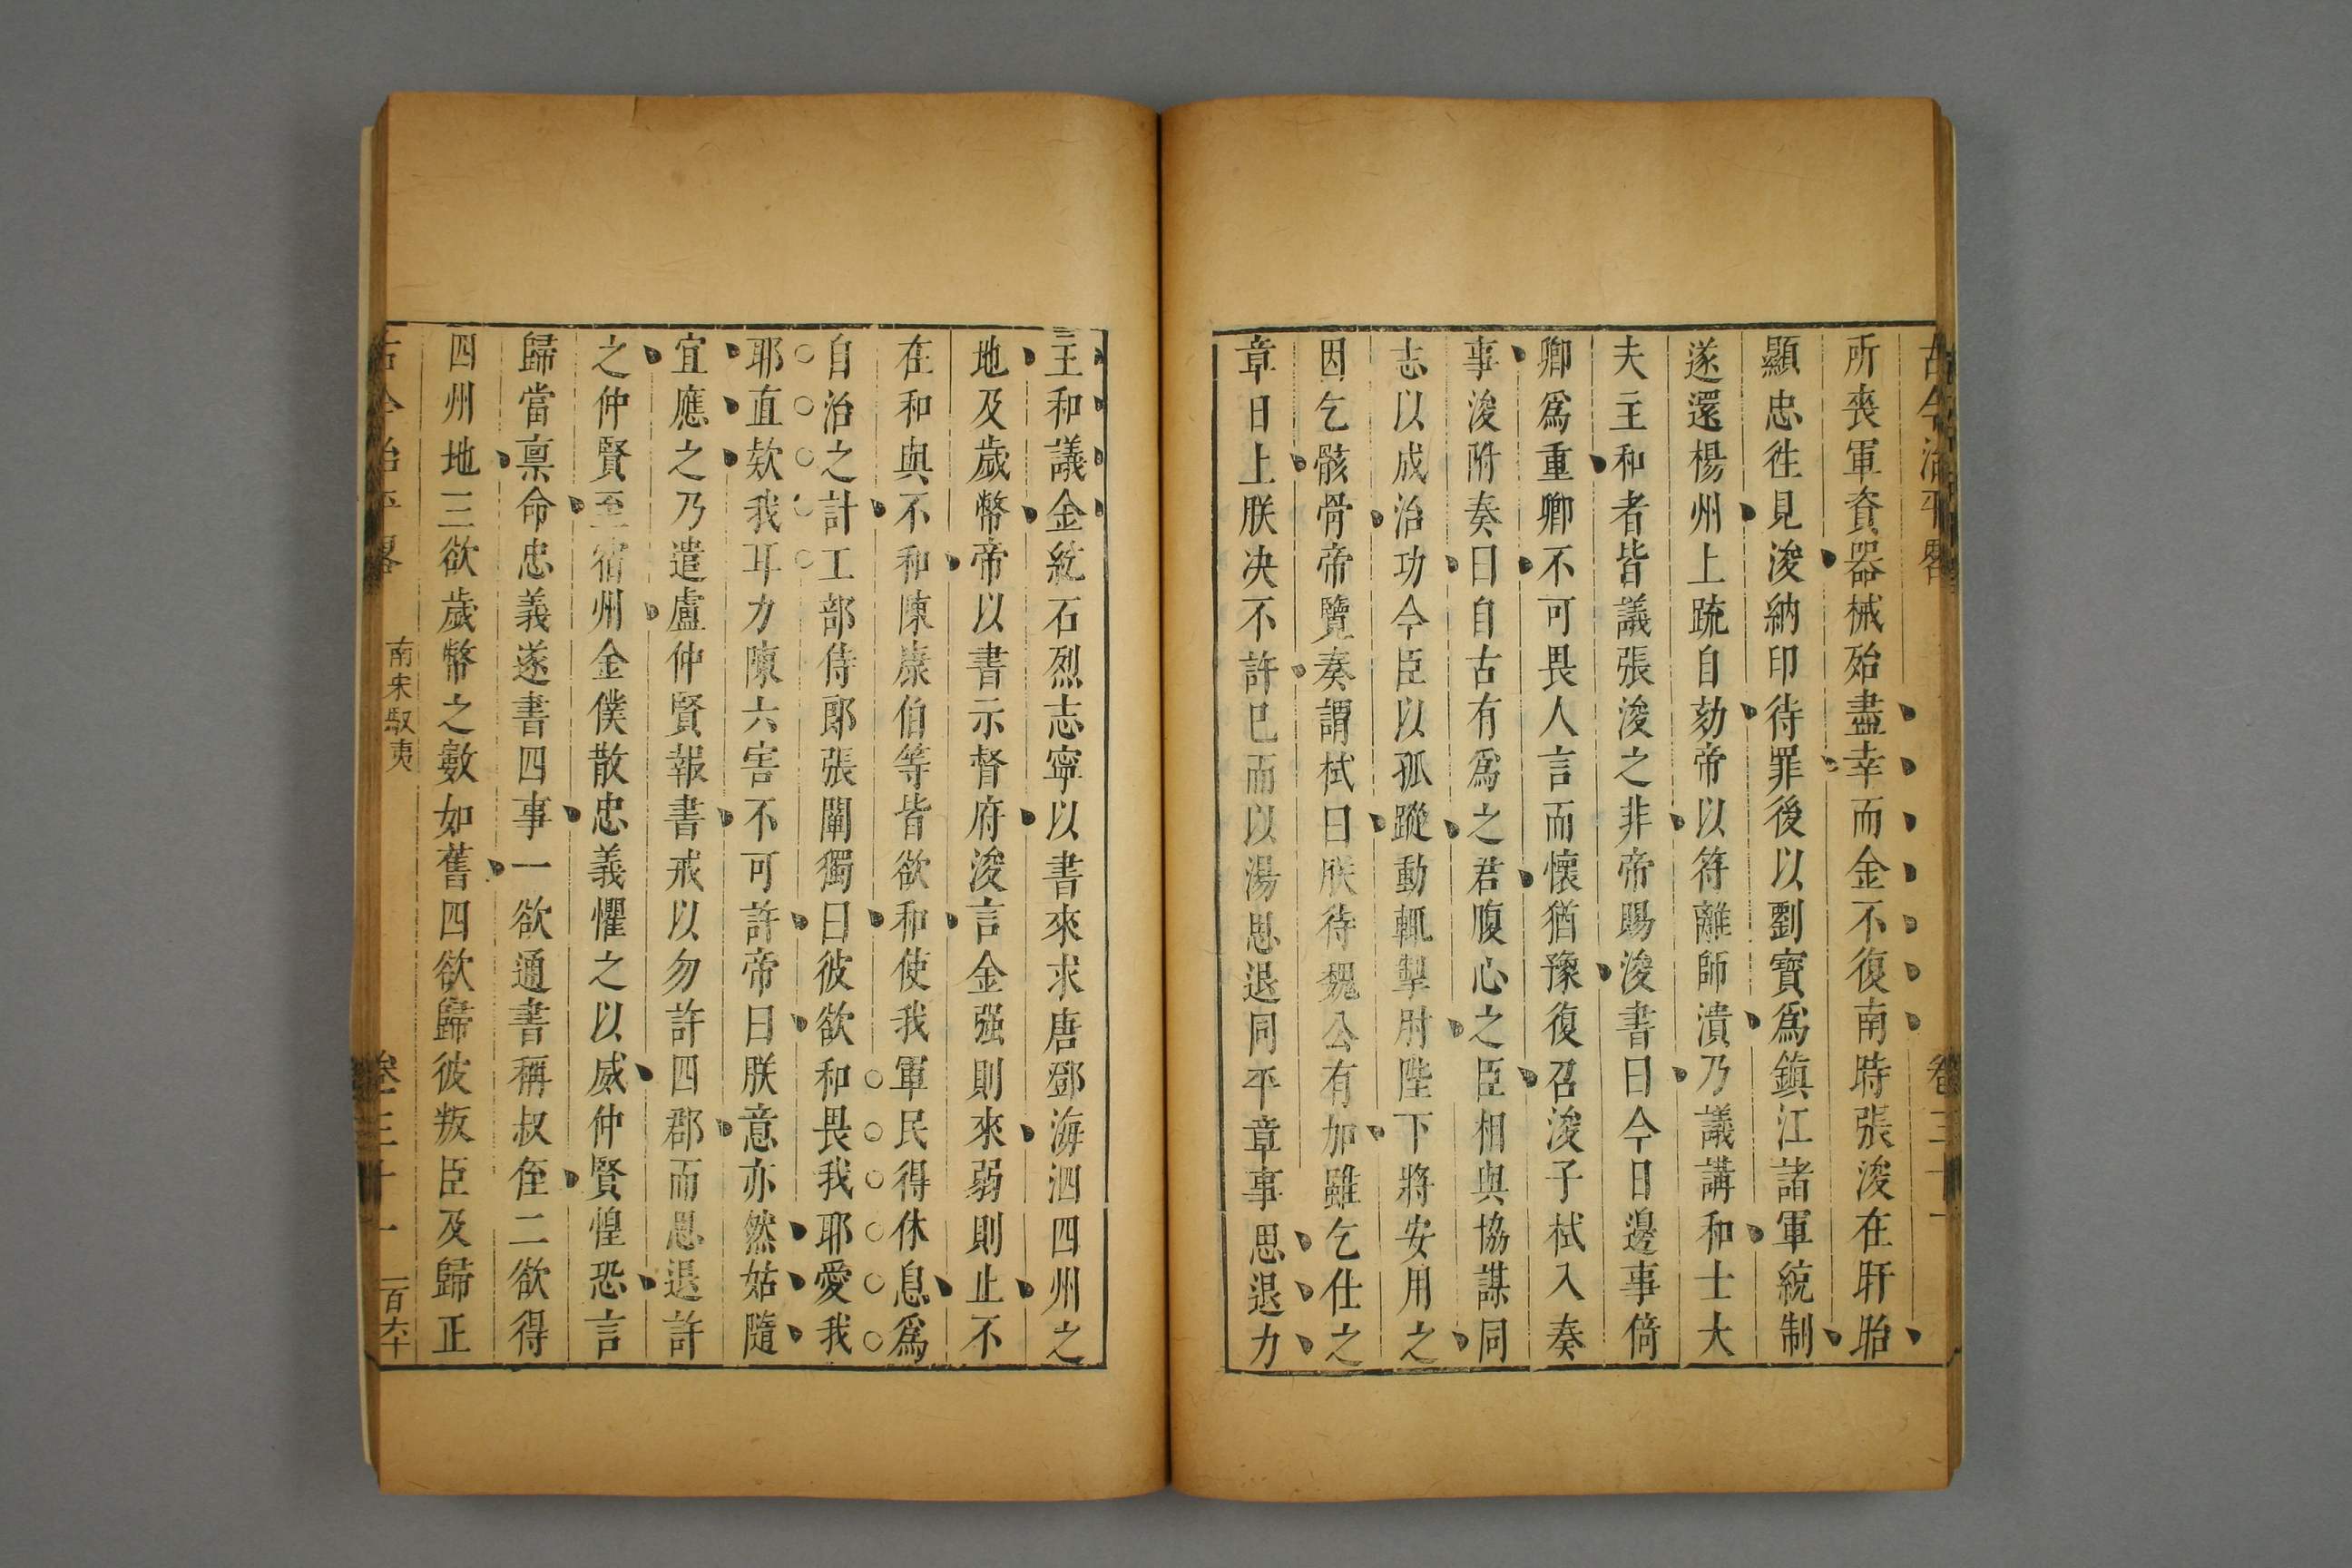 古今治平畧 卷三十一
所喪軍資器械殆盡幸而金不復南時張浚在盱眙
顯忠徃見浚納印待罪後以劉寶爲鎮江諸軍統制
遂還楊州上疏自劾帝以符離師潰乃議講和士大
夫主和者皆議張浚之非帝賜浚書曰今日邊事倚
卿爲重卿不可畏人言而懷猶豫復召浚子栻入奏
事浚附奏曰自古有爲之君腹心之臣相與協謀同
志以成治功今臣以孤蹤動輒掣肘陛下將安用之
因乞骸骨帝覽奏謂栻曰朕待魏公有加雖乞仕之
章日上朕决不許已而以湯思退同平章事思退力
主和議金紇石烈志寧以書來求唐鄧海泗四州之
地及歲幣帝以書示督府浚言金强則來弱則止不
在和與不和陳康伯等皆欲和使我軍民得休息爲
自治之計工部侍郎張闡獨曰彼欲和畏我耶愛我
耶直欵我耳力陳六害不可許帝曰朕意亦然姑隨
宜應之乃遣盧仲賢報書戒以勿許四郡而思退許
之仲賢至宿州金僕散忠義懼之以威仲賢惶恐言
歸當禀命忠義遂書四事一欲通書稱叔侄二欲得
四州地三欲歲幣之數如舊四欲歸彼叛臣及歸正
古今治平畧 南宋馭夷 卷三十一 一百六十